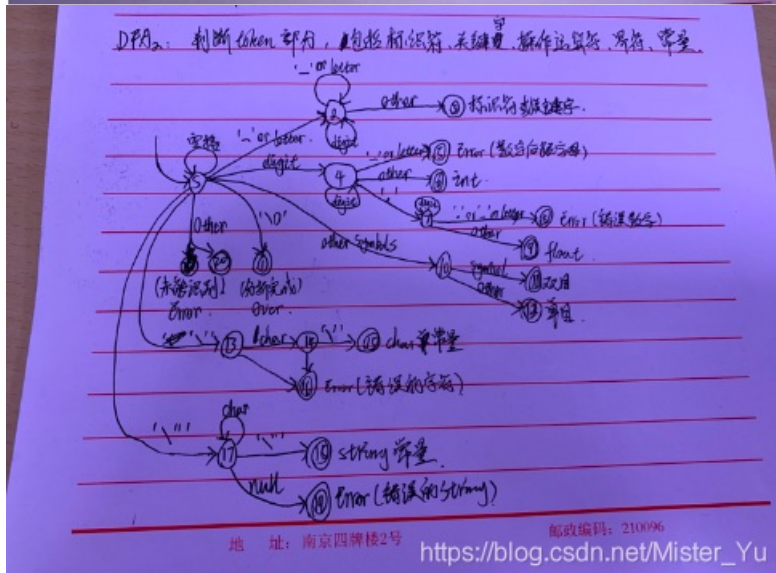 DFA₂: 判断token部分,包括标识符、关键字、操作运算符、界符、常量
'_' or letter
other ③ 标识符或关键字.
2
空格
'_' or letter
digit
'_' or letter ⑤ Error(数字后跟字母)
digit
4
other ⑥ int.
digit
'.'
digit
'.' or '_' or letter ⑧ Error(错误数字)
other ⑨ float.
other
'\0'
other symbols
10
symbol 双目
other ⑫ 单目
(未能识别) (分析完成)
Error. Over.
'\'' 13 char 14 '\'' ⑮ char 常量
⑯ Error(错误的字符)
char
'\"' 17 '\"' ⑱ string 常量.
null ⑲ Error(错误的string)
地 址:南京四牌楼2号 邮政编码:210096
https://blog.csdn.net/Mister_Yu